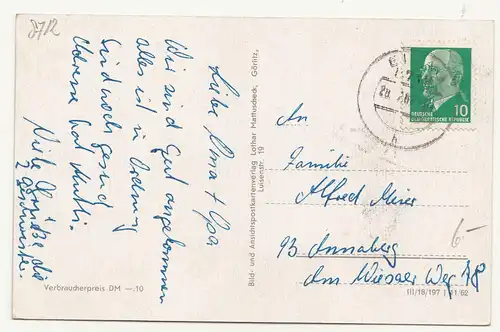 8712
Liebe Oma + Opa
Wir sind gut angekommen
alles ist in Ordnung
sind noch gesund
Adresse hat Mutti.
Viele Grüße die
2 Geschwister.
Verbraucherpreis DM —.10
Bild- und Ansichtspostkartenverlag Lothar Mattuscheck, Görlitz,
Luisenstr. 19
DEUTSCHE
DEMOKRATISCHE REPUBLIK
10
h
An
Familie
Alfred Meier
93 Annaberg
Am Wiesaer Weg 18
6-
III/18/197 | 21/62